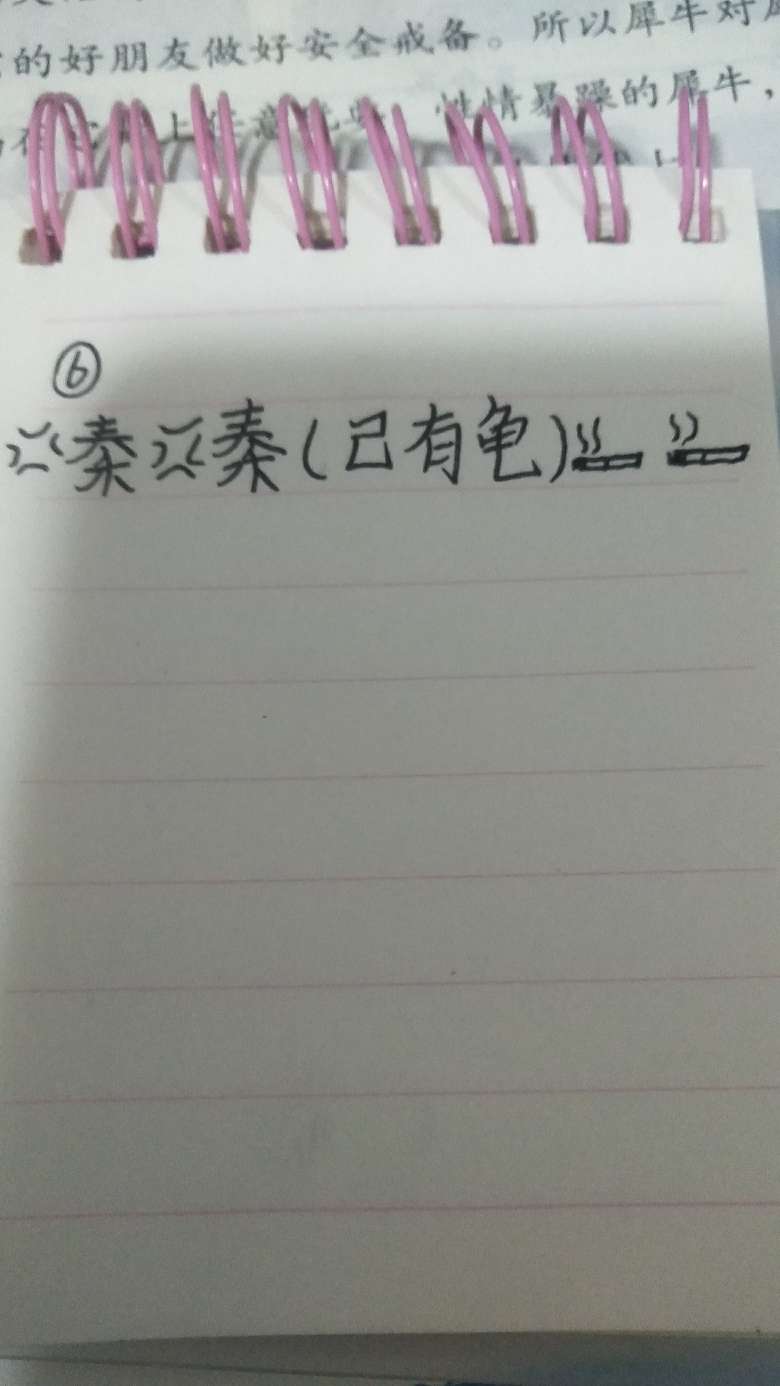 的好朋友做好安全戒备。所以犀牛对
性情暴躁的犀牛，
⑥
💢秦💢秦(已有龟)🚬🚬